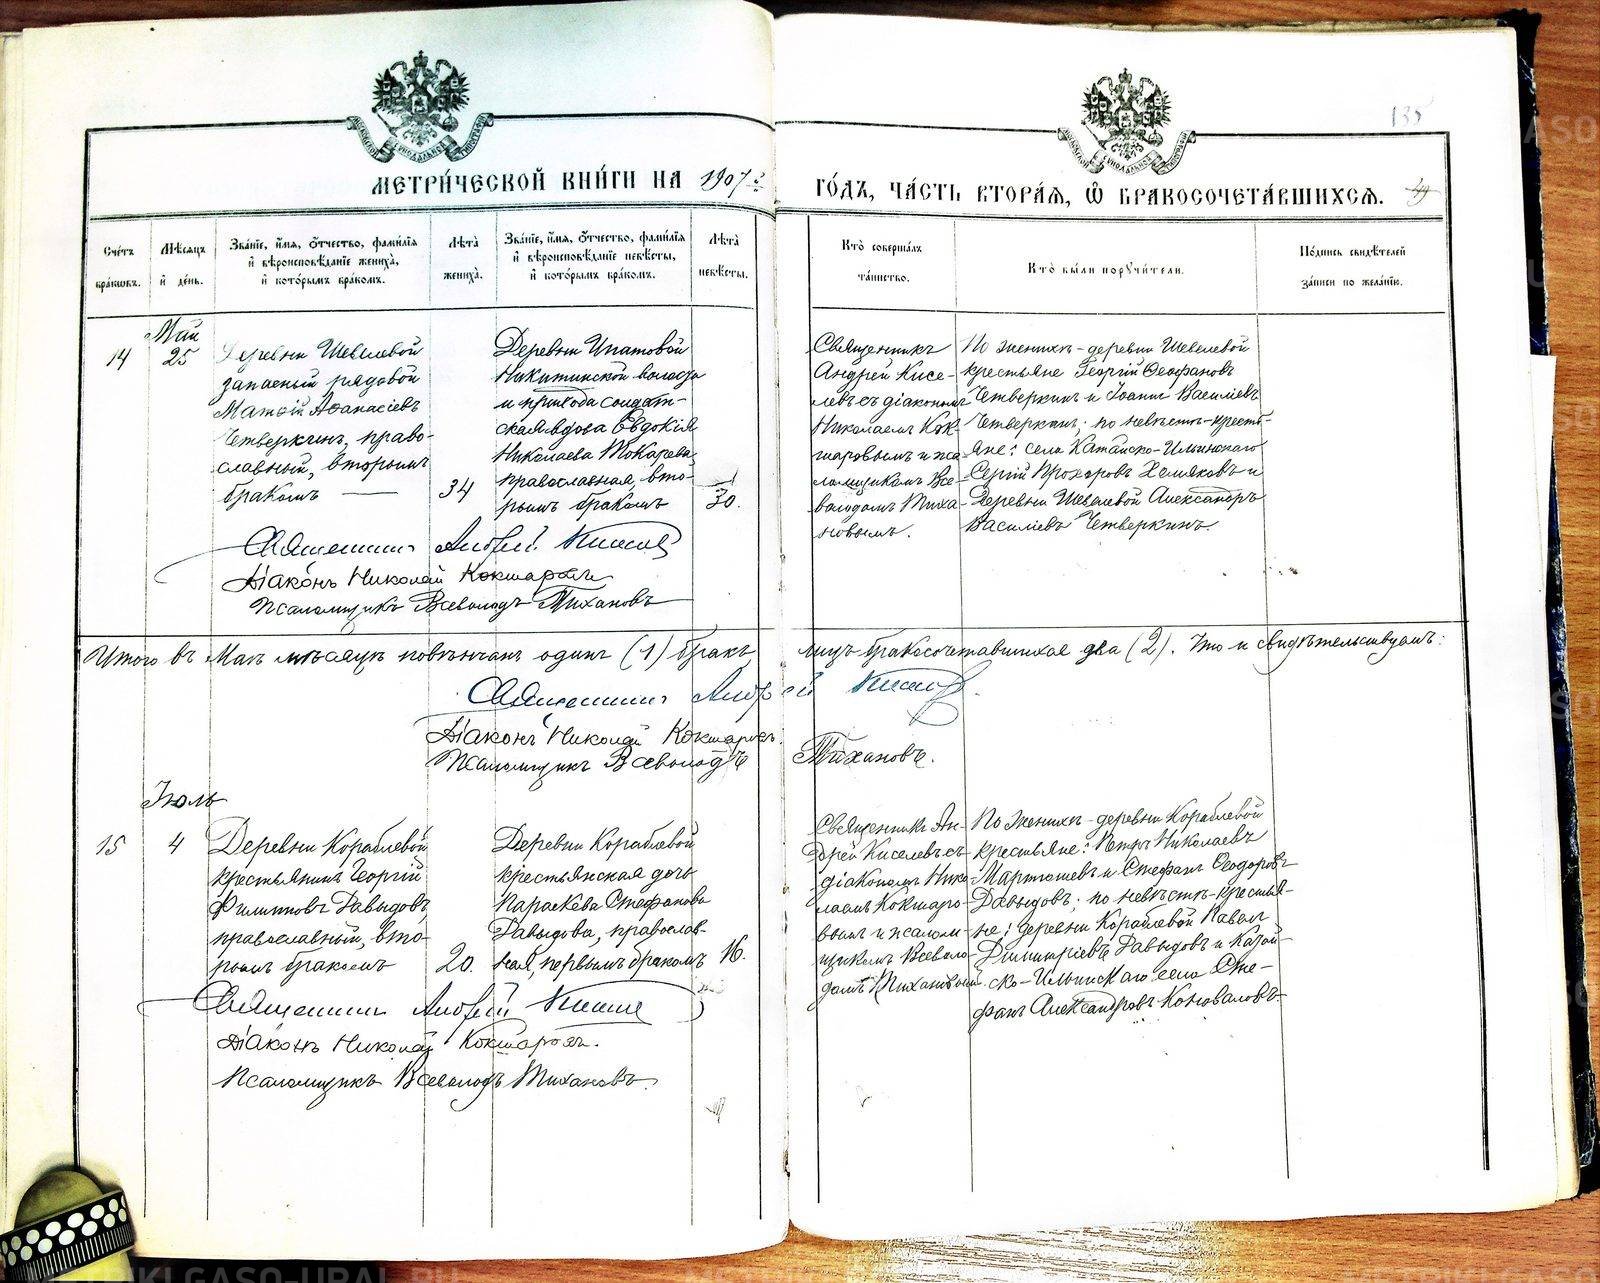 135
МЕТРИ́ЧЕСКОЙ КНИ́ГИ НА 1907 й
ГО́ДЪ, ЧА́СТЬ ВТОРА́Я, Ѽ БРАКОСОЧЕТА́ВШИХСЯ.
Сче́тъ бра́ковъ.
Мѣ́сяцъ и́ де́нь.
Зва́ніе, и́мя, ѻ҆́тчество, фами́лія и́ вѣроисповѣ́даніе жениха̀, и́ кото́рымъ бра́комъ.
Лѣта̀ жениха̀.
Зва́ніе, и́мя, ѻ҆́тчество, фами́лія и́ вѣроисповѣ́даніе невѣ́сты, и́ кото́рымъ бра́комъ.
Лѣта̀ невѣ́сты.
Кто̀ соверша́лъ та́инство.
Кто̀ бы́ли порꙋчи́тели.
По́дпись свидѣ́телей за́писи по жела́нію.
Май
14
25
Деревни Шевелевой
запасный рядовой
Матѳій Аѳанасіевъ
Четверкинъ, право-
славный, вторымъ
бракомъ —
34
Деревни Ипатовой
Никитинской волости
и прихода солдат-
ская вдова Евдокія
Николаева Токарева,
православная, вто-
рымъ бракомъ
30.
Священникъ
Андрей Кисе-
левъ съ діакономъ
Николаемъ Кок-
шаровымъ и пса-
ломщикомъ Все-
володомъ Тиха-
новымъ.
По женихѣ - деревни Шевелевой
крестьяне Георгій Ѳеофановъ
Четверкинъ и Іоаннъ Василіевъ
Четверкинъ; по невѣстѣ - кресть-
яне: села Катайско-Ильинскаго
Сергій Прохоровъ Хомяковъ и
Деревни Шевелевой Александръ
Василіевъ Четверкинъ.
Священникъ Андрей Киселев
Діаконъ Николай Кокшаровъ
Псаломщикъ Всеволодъ Тихановъ
Итого въ Маѣ мѣсяцѣ повѣнчанъ одинъ (1) бракъ лицъ бракосочетавшихся два (2). Что и свидѣтельствуемъ:
Священникъ Андрей Киселев.
Діаконъ Николай Кокшаровъ.
Псаломщикъ Всеволодъ Тихановъ.
Іюль
15
4
Деревни Кораблевой
крестьянинъ Георгій
Филипповъ Давыдовъ,
православный, вто-
рымъ бракомъ
20.
Деревни Кораблевой
крестьянская дочь
Параскева Стефанова
Давыдова, православ-
ная, первымъ бракомъ
16.
Священникъ Ан-
дрей Киселевъ съ
діакономъ Нико-
лаемъ Кокшаро-
вымъ и псалом-
щикомъ Всеволо-
домъ Тихановымъ
По женихѣ - деревни Кораблевой
крестьяне: Петръ Николаевъ
Мартюшевъ и Стефанъ Ѳеодоровъ
Давыдовъ; по невѣстѣ - крестья-
не: деревни Кораблевой Павелъ
Димитріевъ Давыдовъ и Катай-
ско-Ильинскаго села Сте-
фанъ Александровъ Коноваловъ
Священникъ Андрей Киселев
Діаконъ Николай Кокшаровъ.
Псаломщикъ Всеволодъ Тихановъ.